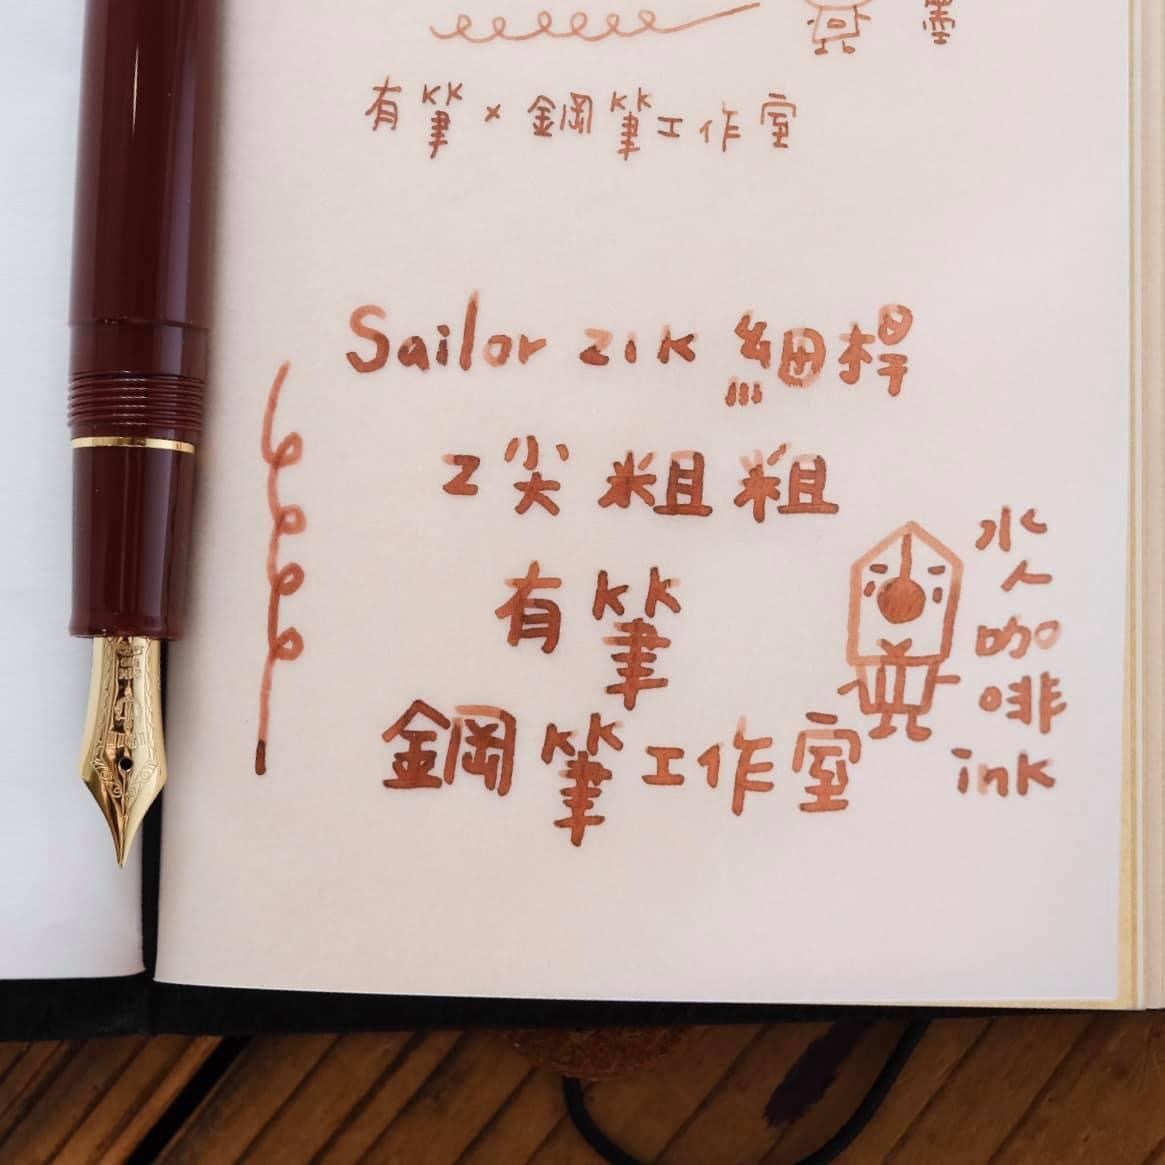 有筆×鋼筆工作室
Sailor 21K 細桿
Z尖 粗粗
有筆
鋼筆工作室
水
人
咖
啡
ink